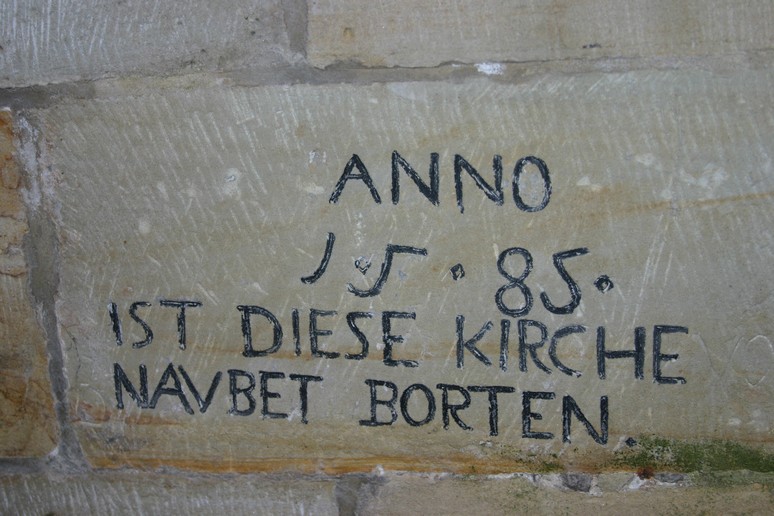 ANNO
1·5·85·
IST DIESE KIRCHE
NAVBET BORTEN.